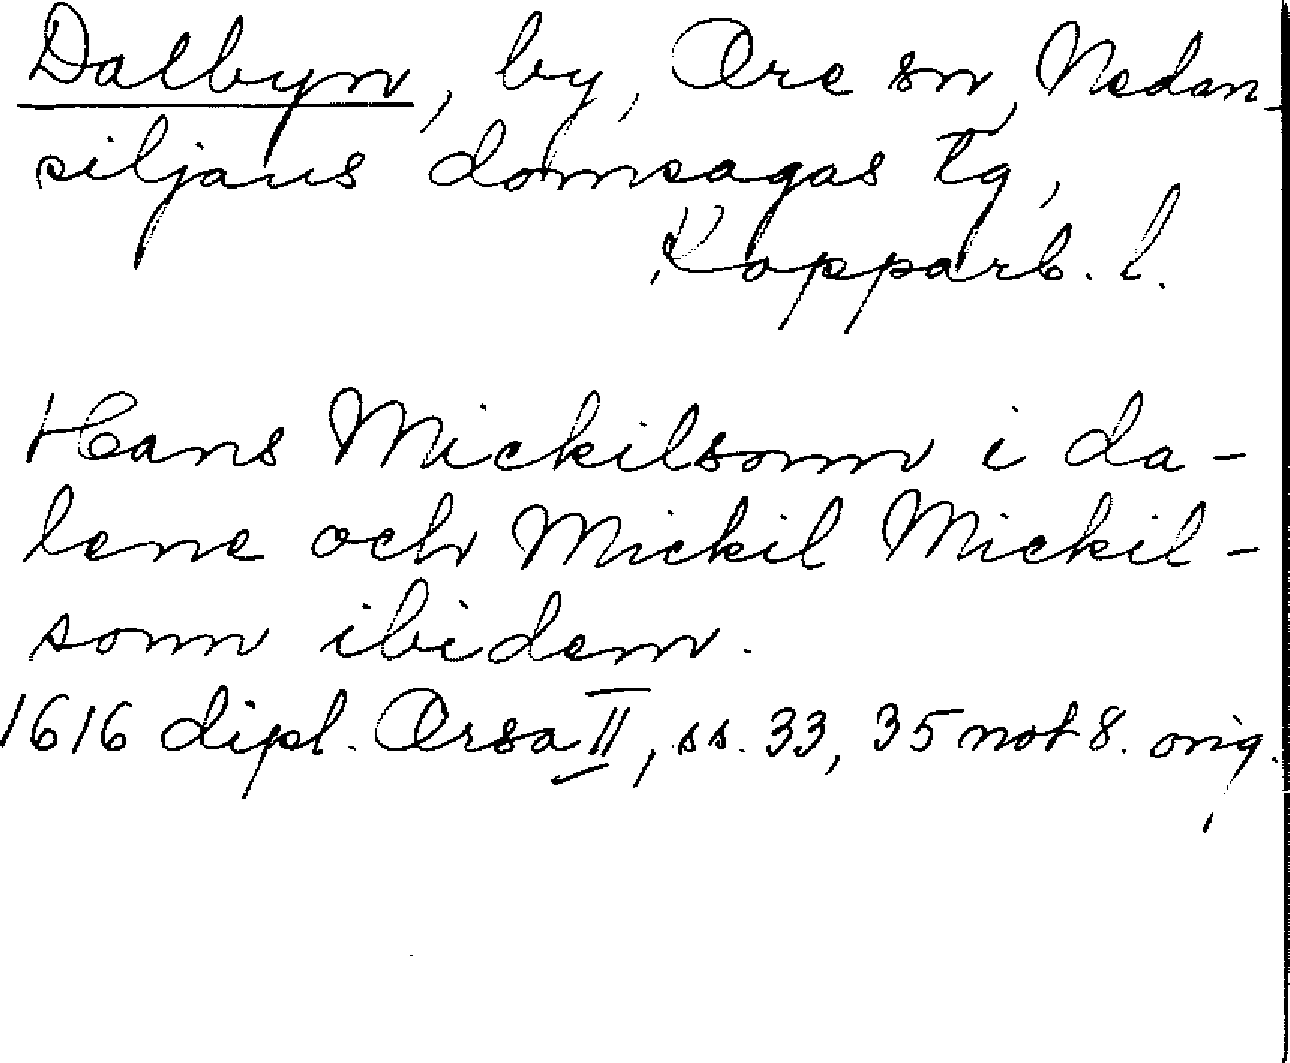 Dalbyn, by, Ore sn, Nedan-
siljans domsagas tg,
Kopparb. l.
Hans Mickilsonn i da-
lene och Mickil Mickil-
sonn ibidem.
1616 dipl. Orsa II, ss. 33, 35 not 8. orig.